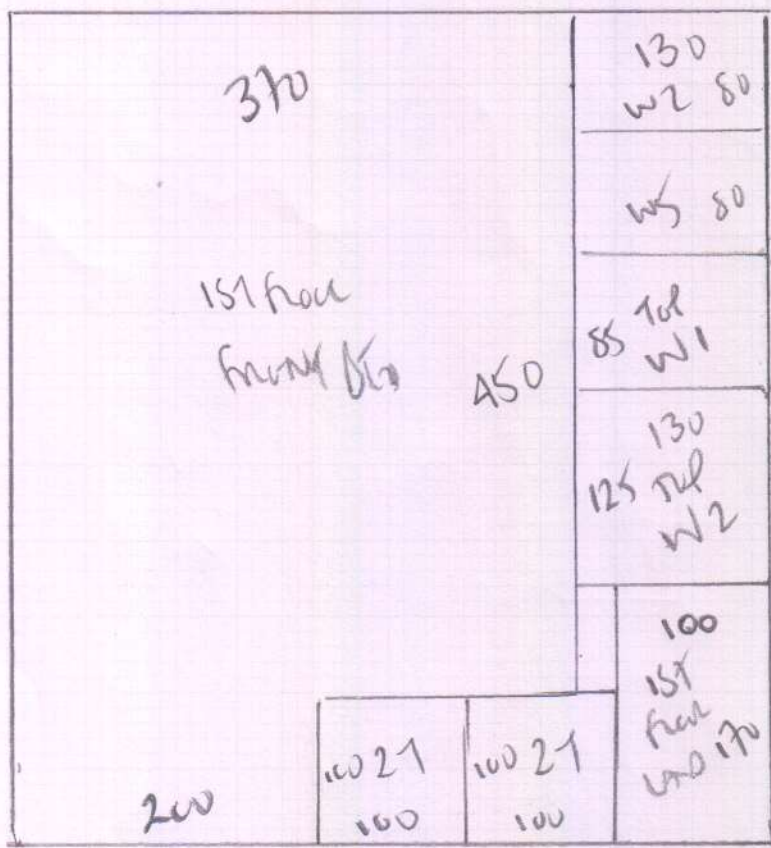 370
1ST Floor
Front
450
200
130
W2 80
W5 80
85 Top
W1
130
125 Top
W2
100
1ST
Floor
170
100 2T
100
100 2T
100